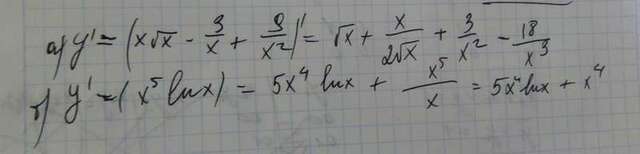 а) y' = (x√x - 3/x + 9/x²)' = √x + x/(2√x) + 3/x² - 18/x³
б) y' = (x⁵ lnx) = 5x⁴ lnx + x⁵/x = 5x⁴ lnx + x⁴